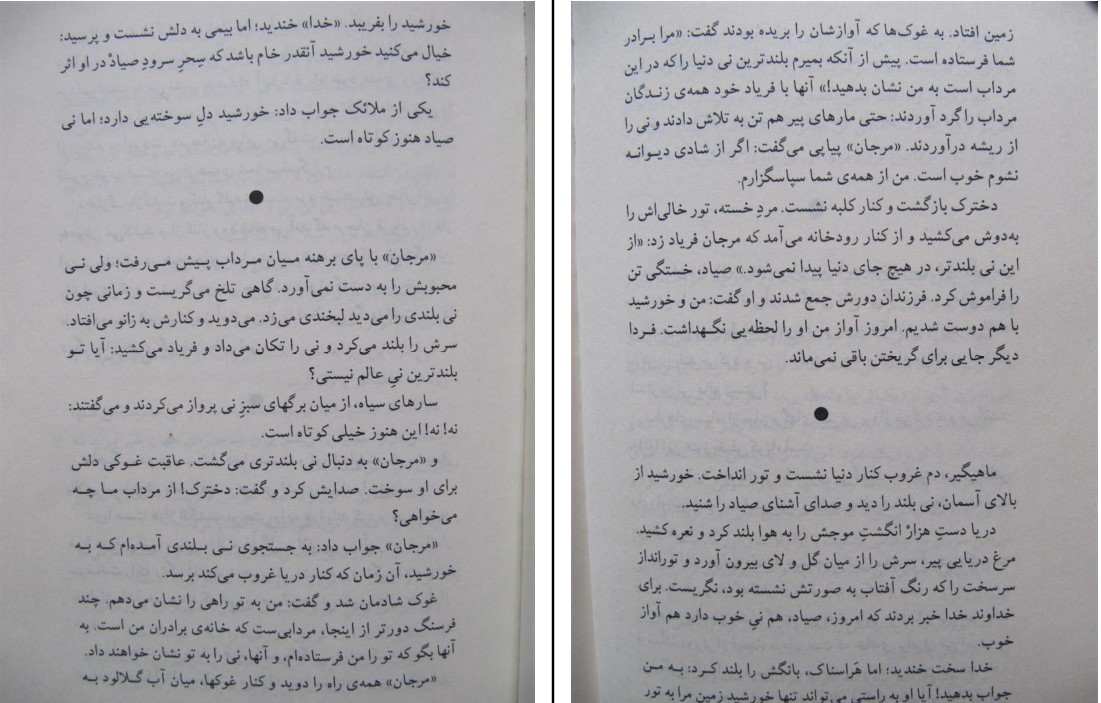 خورشید را بفریبد. «خدا» خندید؛ اما بیمی به دلش نشست و پرسید:
خیال می‌کنید خورشید آنقدر خام باشد که سِحرِ سرودِ صیادْ در او اثر
کند؟
یکی از ملائک جواب داد: خورشید دلِ سوخته‌یی دارد؛ اما نی
صیاد هنوز کوتاه است.
●
«مرجان» با پای برهنه میان مرداب پیش می‌رفت؛ ولی نی
محبوبش را به دست نمی‌آورد. گاهی تلخ می‌گریست و زمانی چون
نی بلندی را می‌دید لبخندی می‌زد. می‌دوید و کنارش به زانو می‌افتاد.
سرش را بلند می‌کرد و نی را تکان می‌داد و فریاد می‌کشید: آیا تو
بلندترین نیِ عالم نیستی؟
سارهای سیاه، از میان برگهای سبزِ نی پرواز می‌کردند و می‌گفتند:
نه! نه! این هنوز خیلی کوتاه است.
و «مرجان» به دنبال نی بلندتری می‌گشت. عاقبت غوکی دلش
برای او سوخت. صدایش کرد و گفت: دخترک! از مرداب ما چه
می‌خواهی؟
«مرجان» جواب داد: به جستجوی نی بلندی آمده‌ام که به
خورشید، آن زمان که کنار دریا غروب می‌کند برسد.
غوک شادمان شد و گفت: من به تو راهی را نشان می‌دهم. چند
فرسنگ دورتر از اینجا، مردابی‌ست که خانه‌ی برادران من است. به
آنها بگو که تو را من فرستاده‌ام، و آنها، نی را به تو نشان خواهند داد.
«مرجان» همه‌ی راه را دوید و کنار غوکها، میان آب گلالود به
زمین افتاد. به غوک‌ها که آوازشان را بریده بودند گفت: «مرا برادر
شما فرستاده است. پیش از آنکه بمیرم بلندترین نی دنیا را که در این
مرداب است به من نشان بدهید!» آنها با فریاد خود همه‌ی زندگان
مرداب را گرد آوردند: حتی مارهای پیر هم تن به تلاش دادند و نی را
از ریشه درآوردند. «مرجان» پیاپی می‌گفت: اگر از شادی دیوانه
نشوم خوب است. من از همه‌ی شما سپاسگزارم.
دخترک بازگشت و کنار کلبه نشست. مردِ خسته، تور خالی‌اش را
به‌دوش می‌کشید و از کنار رودخانه می‌آمد که مرجان فریاد زد: «از
این نی بلندتر، در هیچ جای دنیا پیدا نمی‌شود.» صیاد، خستگی تن
را فراموش کرد. فرزندان دورش جمع شدند و او گفت: من و خورشید
با هم دوست شدیم. امروز آواز من او را لحظه‌یی نگهداشت. فردا
دیگر جایی برای گریختن باقی نمی‌ماند.
●
ماهیگیر، دم غروب کنار دنیا نشست و تور انداخت. خورشید از
بالای آسمان، نی بلند را دید و صدای آشنای صیاد را شنید.
دریا دستِ هزارْ انگشتِ موجش را به هوا بلند کرد و نعره کشید.
مرغ دریایی پیر، سرش را از میان گل و لای بیرون آورد و تورانداز
سرسخت را که رنگ آفتاب به صورتش نشسته بود، نگریست. برای
خداوند خدا خبر بردند که امروز، صیاد، هم نیِ خوب دارد هم آواز
خوب.
خدا سخت خندید؛ اما هَراسناک، بانگش را بلند کرد: به من
جواب بدهید! آیا او به راستی می‌تواند تنها خورشید زمین مرا به تور